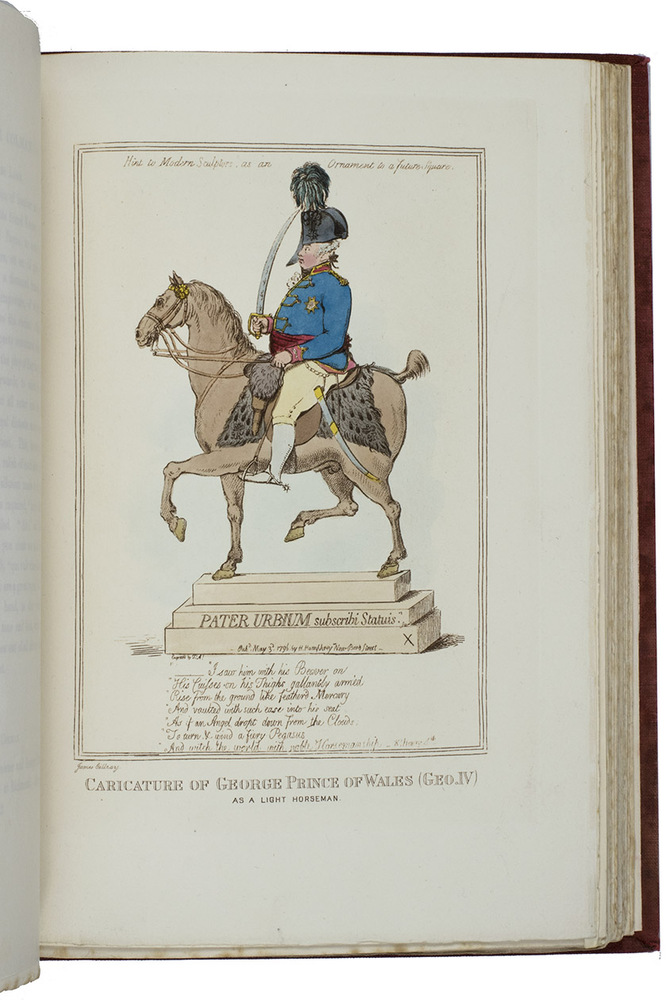 Hint to Modern Sculptors, as an Ornament to a future Square.
PATER URBIUM subscribi Statuis.
X
Pubd. May 3d 1796 by H. Humphrey New Bond Street
"I saw him with his Beaver on
"His Cuisses on his Thighs gallantly armed
"Rise from the ground like featherd Mercury
"And vaulted with such ease into his seat
"As if an Angel dropt down from the Clouds
"To turn & wind a fiery Pegasus
"And witch the world with noble Horsemanship
James Gillray
CARICATURE OF GEORGE PRINCE OF WALES (GEO.IV)
AS A LIGHT HORSEMAN.